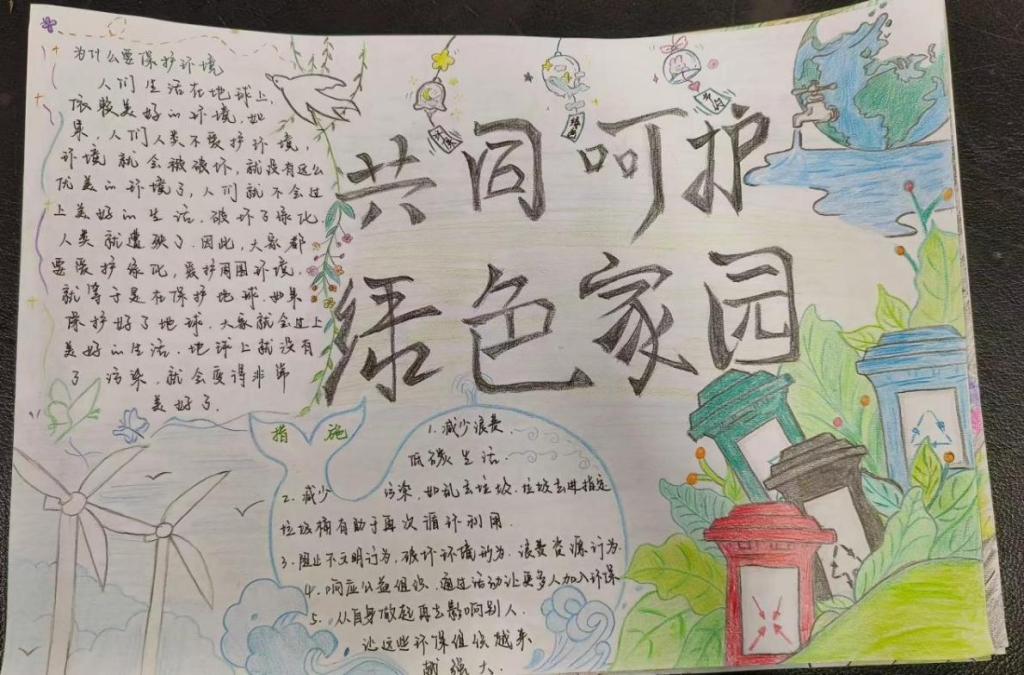 为什么要保护环境
人们生活在地球上,
依赖美好的环境,如
果,人们人类不爱护环境,
环境就会被破坏,就没有这么
优美的环境了,人们就不会过
上美好的生活.破坏了绿化,
人类就遭殃了.因此,大家都
要爱护绿化,爱护周围环境.
就等于是在保护地球.如果
保护好了地球.大家就会过上
美好的生活.地球上就没有
了污染,就会变得非常
美好了.
共同呵护
绿色家园
措施
1.减少浪费.
低碳生活.
2.减少 污染,如乱丢垃圾.垃圾丢进指定
垃圾桶有助于再次循环利用.
3.阻止不文明行为,破坏环境行为.浪费资源行为.
4.响应公益组织.通过活动让更多人加入环保
5.从自身做起再去影响别人.
让这些环保组织越来
越强大.